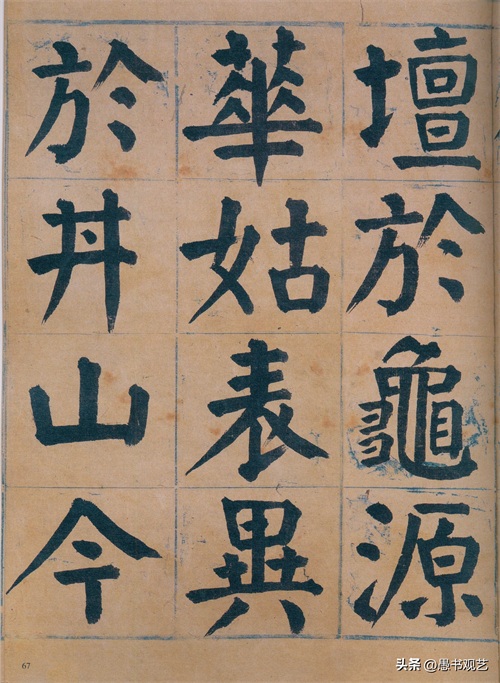 壇於龜源
華姑表異
於丼山今
67
头条 @愚书观艺